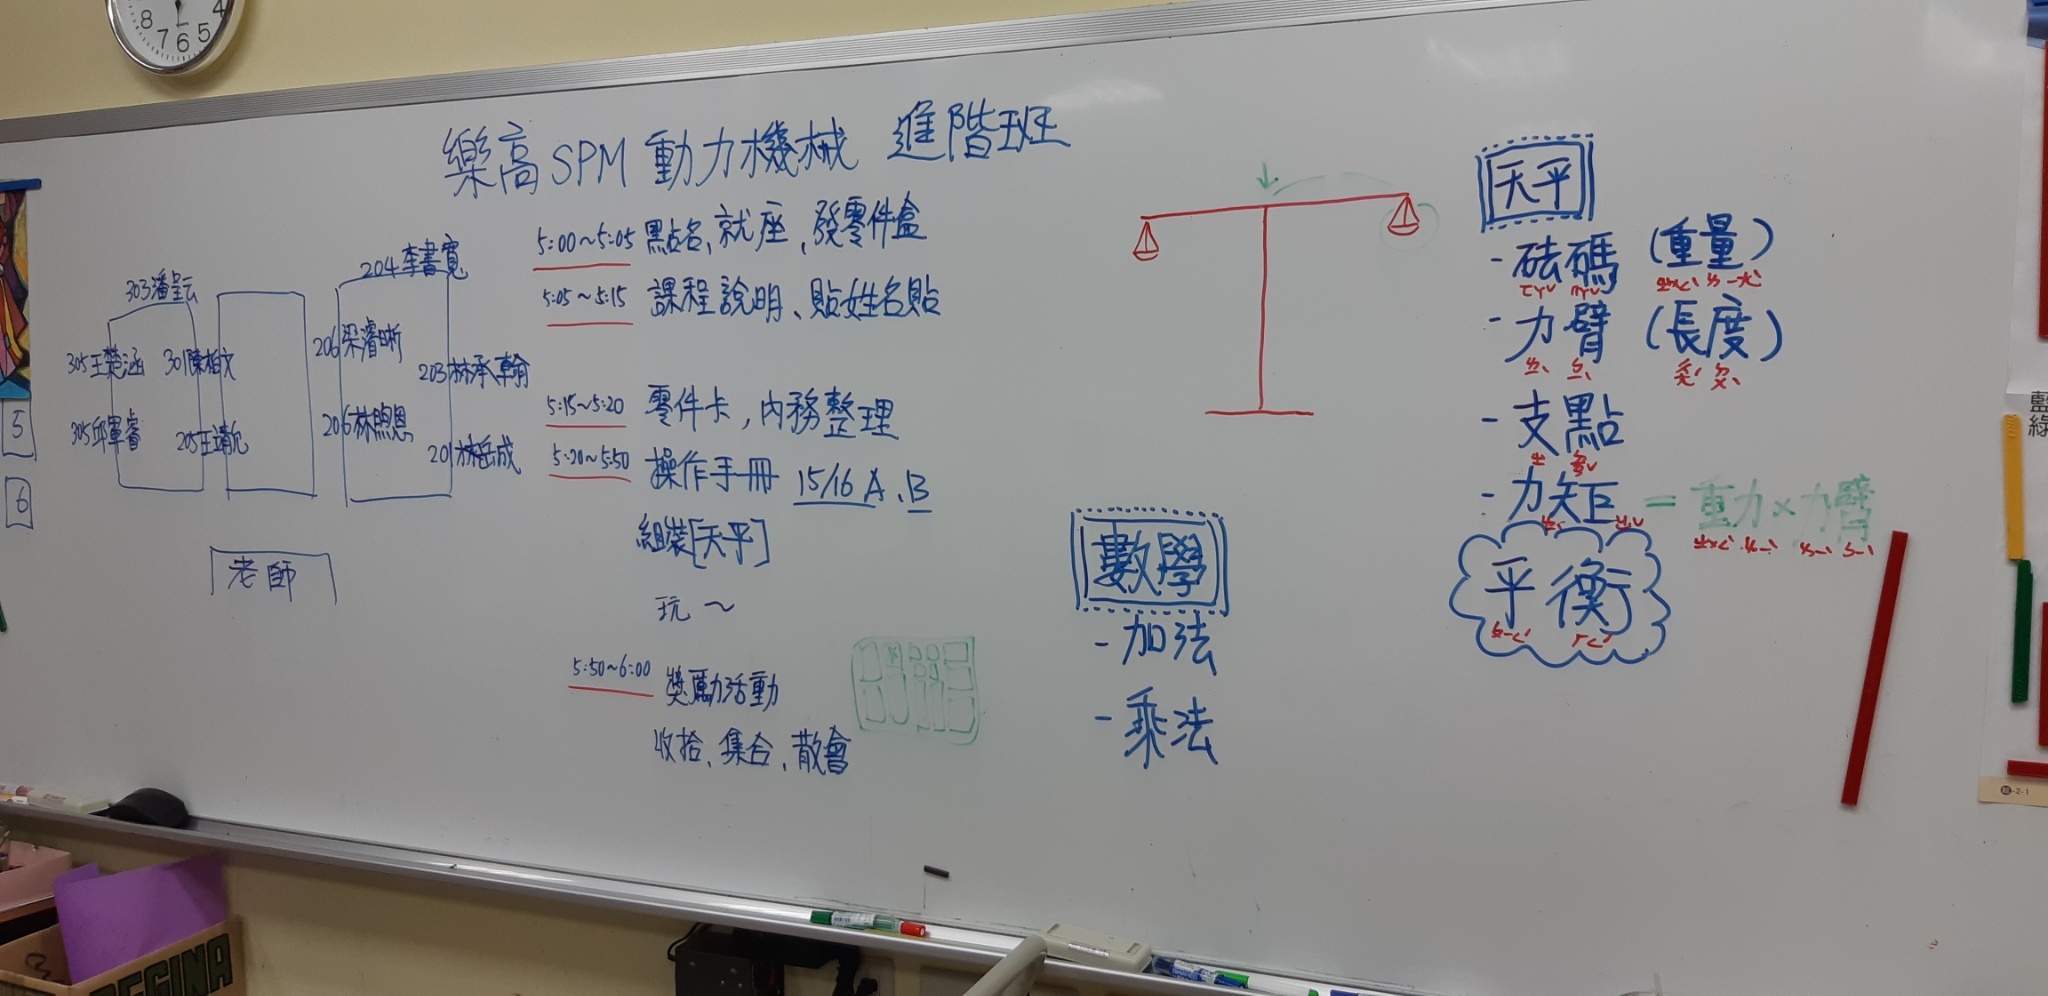 樂高SPM動力機械 進階班
5:00~5:05 點名、就座、發零件盒
5:05~5:15 課程說明、貼姓名貼
5:15~5:20 零件卡,內務整理
5:20~5:50 操作手冊 15/16 A、B
組裝[天平]
玩~
5:50~6:00 獎勵活動
收拾、集合、散會
303潘呈云
204李書寬
305王楚涵
301陳柏文
206梁濬晰
203林承翰
305邱軍睿
205王靖
206林煦恩
201林岳成
老師
數學
-加法
-乘法
天平
-砝碼(重量)
ㄈㄚˇ ㄇㄚˇ ㄓㄨㄥˋ ㄌㄧㄤˋ
-力臂(長度)
ㄌㄧˋ ㄅㄧˋ ㄔㄤˊ ㄉㄨˋ
-支點
ㄓ ㄉㄧㄢˇ
-力矩=重力×力臂
ㄌㄧˋ ㄐㄩˇ ㄓㄨㄥˋ ㄌㄧˋ ㄌㄧˋ ㄅㄧˋ
平衡
ㄆㄧㄥˊ ㄏㄥˊ
8 7 6 5 4
5
6
藍
綠
-2-1
REGINA